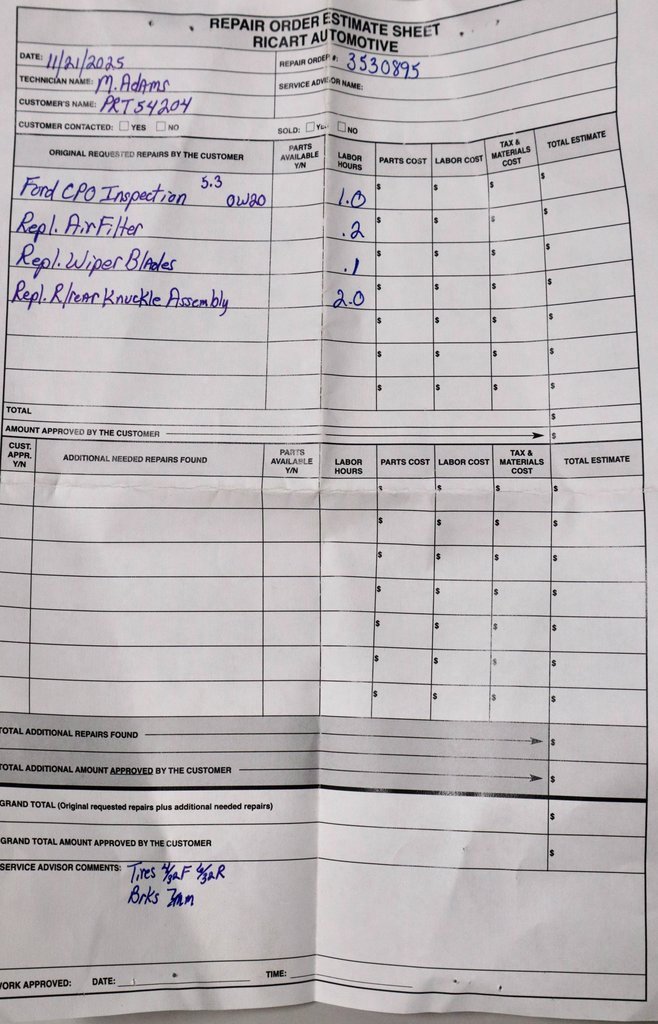 REPAIR ORDER ESTIMATE SHEET
RICART AUTOMOTIVE
DATE: 11/21/2025 REPAIR ORDER #: 3530895
TECHNICIAN NAME: M. Adams SERVICE ADVISOR NAME:
CUSTOMER'S NAME: PRT54204
CUSTOMER CONTACTED: ☐ YES ☐ NO SOLD: ☐ YES ☐ NO
ORIGINAL REQUESTED REPAIRS BY THE CUSTOMER PARTS AVAILABLE Y/N LABOR HOURS PARTS COST LABOR COST TAX & MATERIALS COST TOTAL ESTIMATE
Ford CPO Inspection 5.3 0W20 1.0 $ $ $ $
Repl. Air Filter .2 $ $ $ $
Repl. Wiper Blades .1 $ $ $ $
Repl. R/rear Knuckle Assembly 2.0 $ $ $ $
$ $ $ $
$ $ $ $
$ $ $ $
TOTAL $
AMOUNT APPROVED BY THE CUSTOMER $
CUST. APPR. Y/N ADDITIONAL NEEDED REPAIRS FOUND PARTS AVAILABLE Y/N LABOR HOURS PARTS COST LABOR COST TAX & MATERIALS COST TOTAL ESTIMATE
$ $ $ $
$ $ $ $
$ $ $ $
$ $ $ $
$ $ $ $
$ $ $ $
$ $ $ $
TOTAL ADDITIONAL REPAIRS FOUND $
TOTAL ADDITIONAL AMOUNT APPROVED BY THE CUSTOMER $
GRAND TOTAL (Original requested repairs plus additional needed repairs) $
GRAND TOTAL AMOUNT APPROVED BY THE CUSTOMER $
SERVICE ADVISOR COMMENTS: Tires 4/32F 6/32R
Brks 7mm
WORK APPROVED: DATE: TIME: